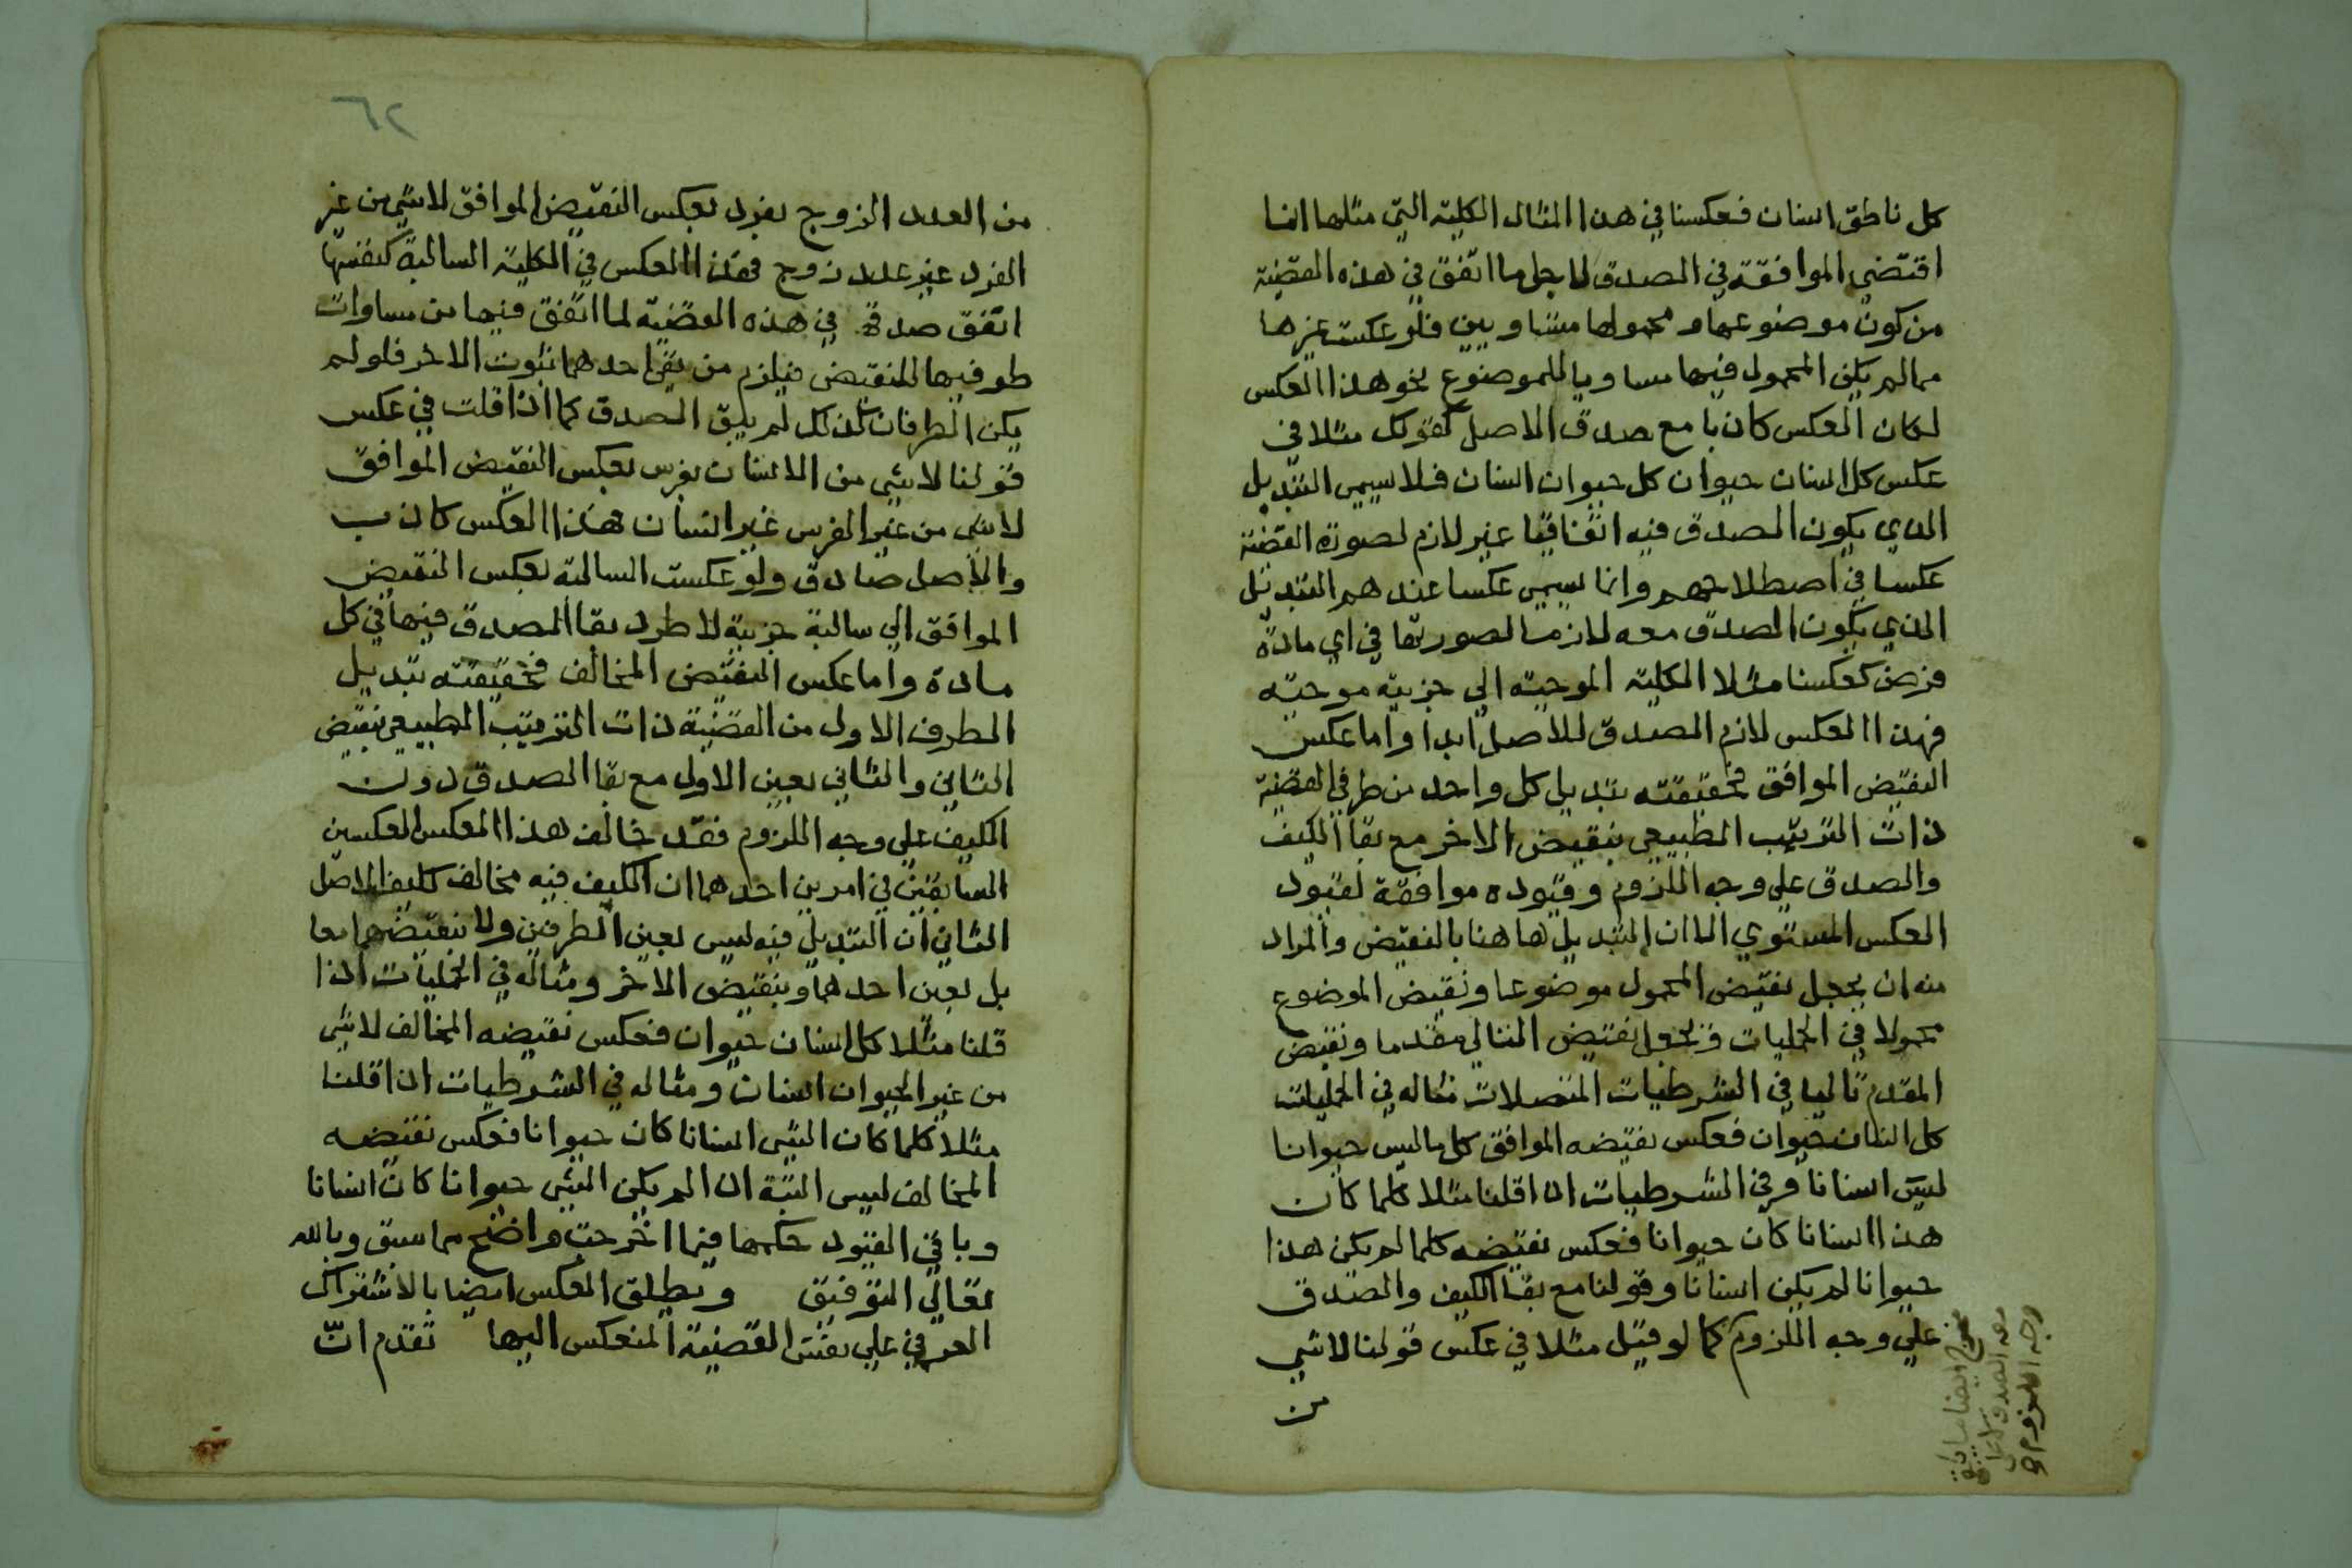 كل ناطق انسان فعكسنا في هذا المثال الكلية التي مثلها انما
اقتضى الموافقة في الصدق لاجل ما اتفق في هذه القضية
من كون موضوعها و محمولها متساويين فلو عكست غيرها
مما لم يكن المحمول فيها مساويا للموضوع نحو هذا العكس
لكان العكس كاذبا مع صدق الاصل كقولك مثلا في
عكس كل انسان حيوان كل حيوان انسان فلا يسمى التبديل
الذي يكون الصدق فيه اتفاقيا غير لازم لصورة القضية
عكسا في اصطلاحهم وانما يسمى عكسا عندهم التبديل
الذي يكون الصدق معه لازما لصورتها في اي مادة
فرض كعكسنا مثلا الكلية الموجبة الى جزيية موجبة
فهذا العكس لازم الصدق للاصل ابدا واما عكس
النقيض الموافق فحقيقته تبديل كل واحد من طرفي القضية
ذات الترتيب الطبيعي بنقيض الاخر مع بقا الكيف
والصدق على وجه اللزوم وقيوده موافقة لقيود
العكس المستوي الا ان التبديل هاهنا بالنقيض والمراد
منه ان يجعل نقيض المحمول موضوعا ونقيض الموضوع
محمولا في الحمليات ويجعل نقيض التالي مقدما ونقيض
المقدم تاليا في الشرطيات المتصلات مثاله في الحمليات
كل انسان حيوان فعكس نقيضه الموافق كل ما ليس حيوانا
ليس انسانا وفي الشرطيات اذا قلنا مثلا كلما كان
هذا انسانا كان حيوانا فعكس نقيضه كلما لم يكن هذا
حيوانا لم يكن انسانا وقولنا مع بقا الكيف والصدق
على وجه اللزوم كما لو قيل مثلا في عكس قولنا لا شي
من
معه الصدق لا على
وجه اللزوم
٦٢
من العدد الزوج بفرد بعكس النقيض الموافق لا شي من غير
الفرد غير عدد زوج فهذا العكس في الكلية السالبة كنفسها
اتفق صدقه في هذه القضية لما اتفق فيها من مساوات
طرفيها للنقيض فيلزم من نفي احدهما ثبوت الاخر فلو لم
يكن الطرفان كذلك لم يبق الصدق كما اذا قلت في عكس
قولنا لا شي من الانسان بفرس بعكس النقيض الموافق
لا شي من غير الفرس غير انسان فهذا العكس كاذب
والاصل صادق ولو عكست السالبة بعكس النقيض
الموافق الي سالبة جزيية لاطرد بقا الصدق فيها في كل
مادة واما عكس النقيض المخالف فحقيقته تبديل
الطرف الاول من القضية ذات الترتيب الطبيعي بنقيض
الثاني والثاني بعين الاول مع بقا الصدق دون
الكيف على وجه اللزوم فقد خالف هذا العكس العكسين
السابقين في امرين احدهما ان الكيف فيه مخالف لكيف الاصل
الثاني ان التبديل فيه ليس بعين الطرفين ولا بنقيضهما معا
بل بعين احدهما وبنقيض الاخر ومثاله في الحمليات اذا
قلنا مثلا كل انسان حيوان فعكس نقيضه المخالف لا شي
من غير الحيوان انسان ومثاله في الشرطيات اذا قلنا
مثلا كلما كان الشي انسانا كان حيوانا فعكس نقيضه
المخالف ليس البتة اذا لم يكن الشي حيوانا كان انسانا
وباقي القيود حكمها فيما اخرجت واضح مما سبق وبالله
تعالى التوفيق ويطلق العكس ايضا بالاشتراك
العرفي على نفس القضية المنعكس اليها تقدم انّ